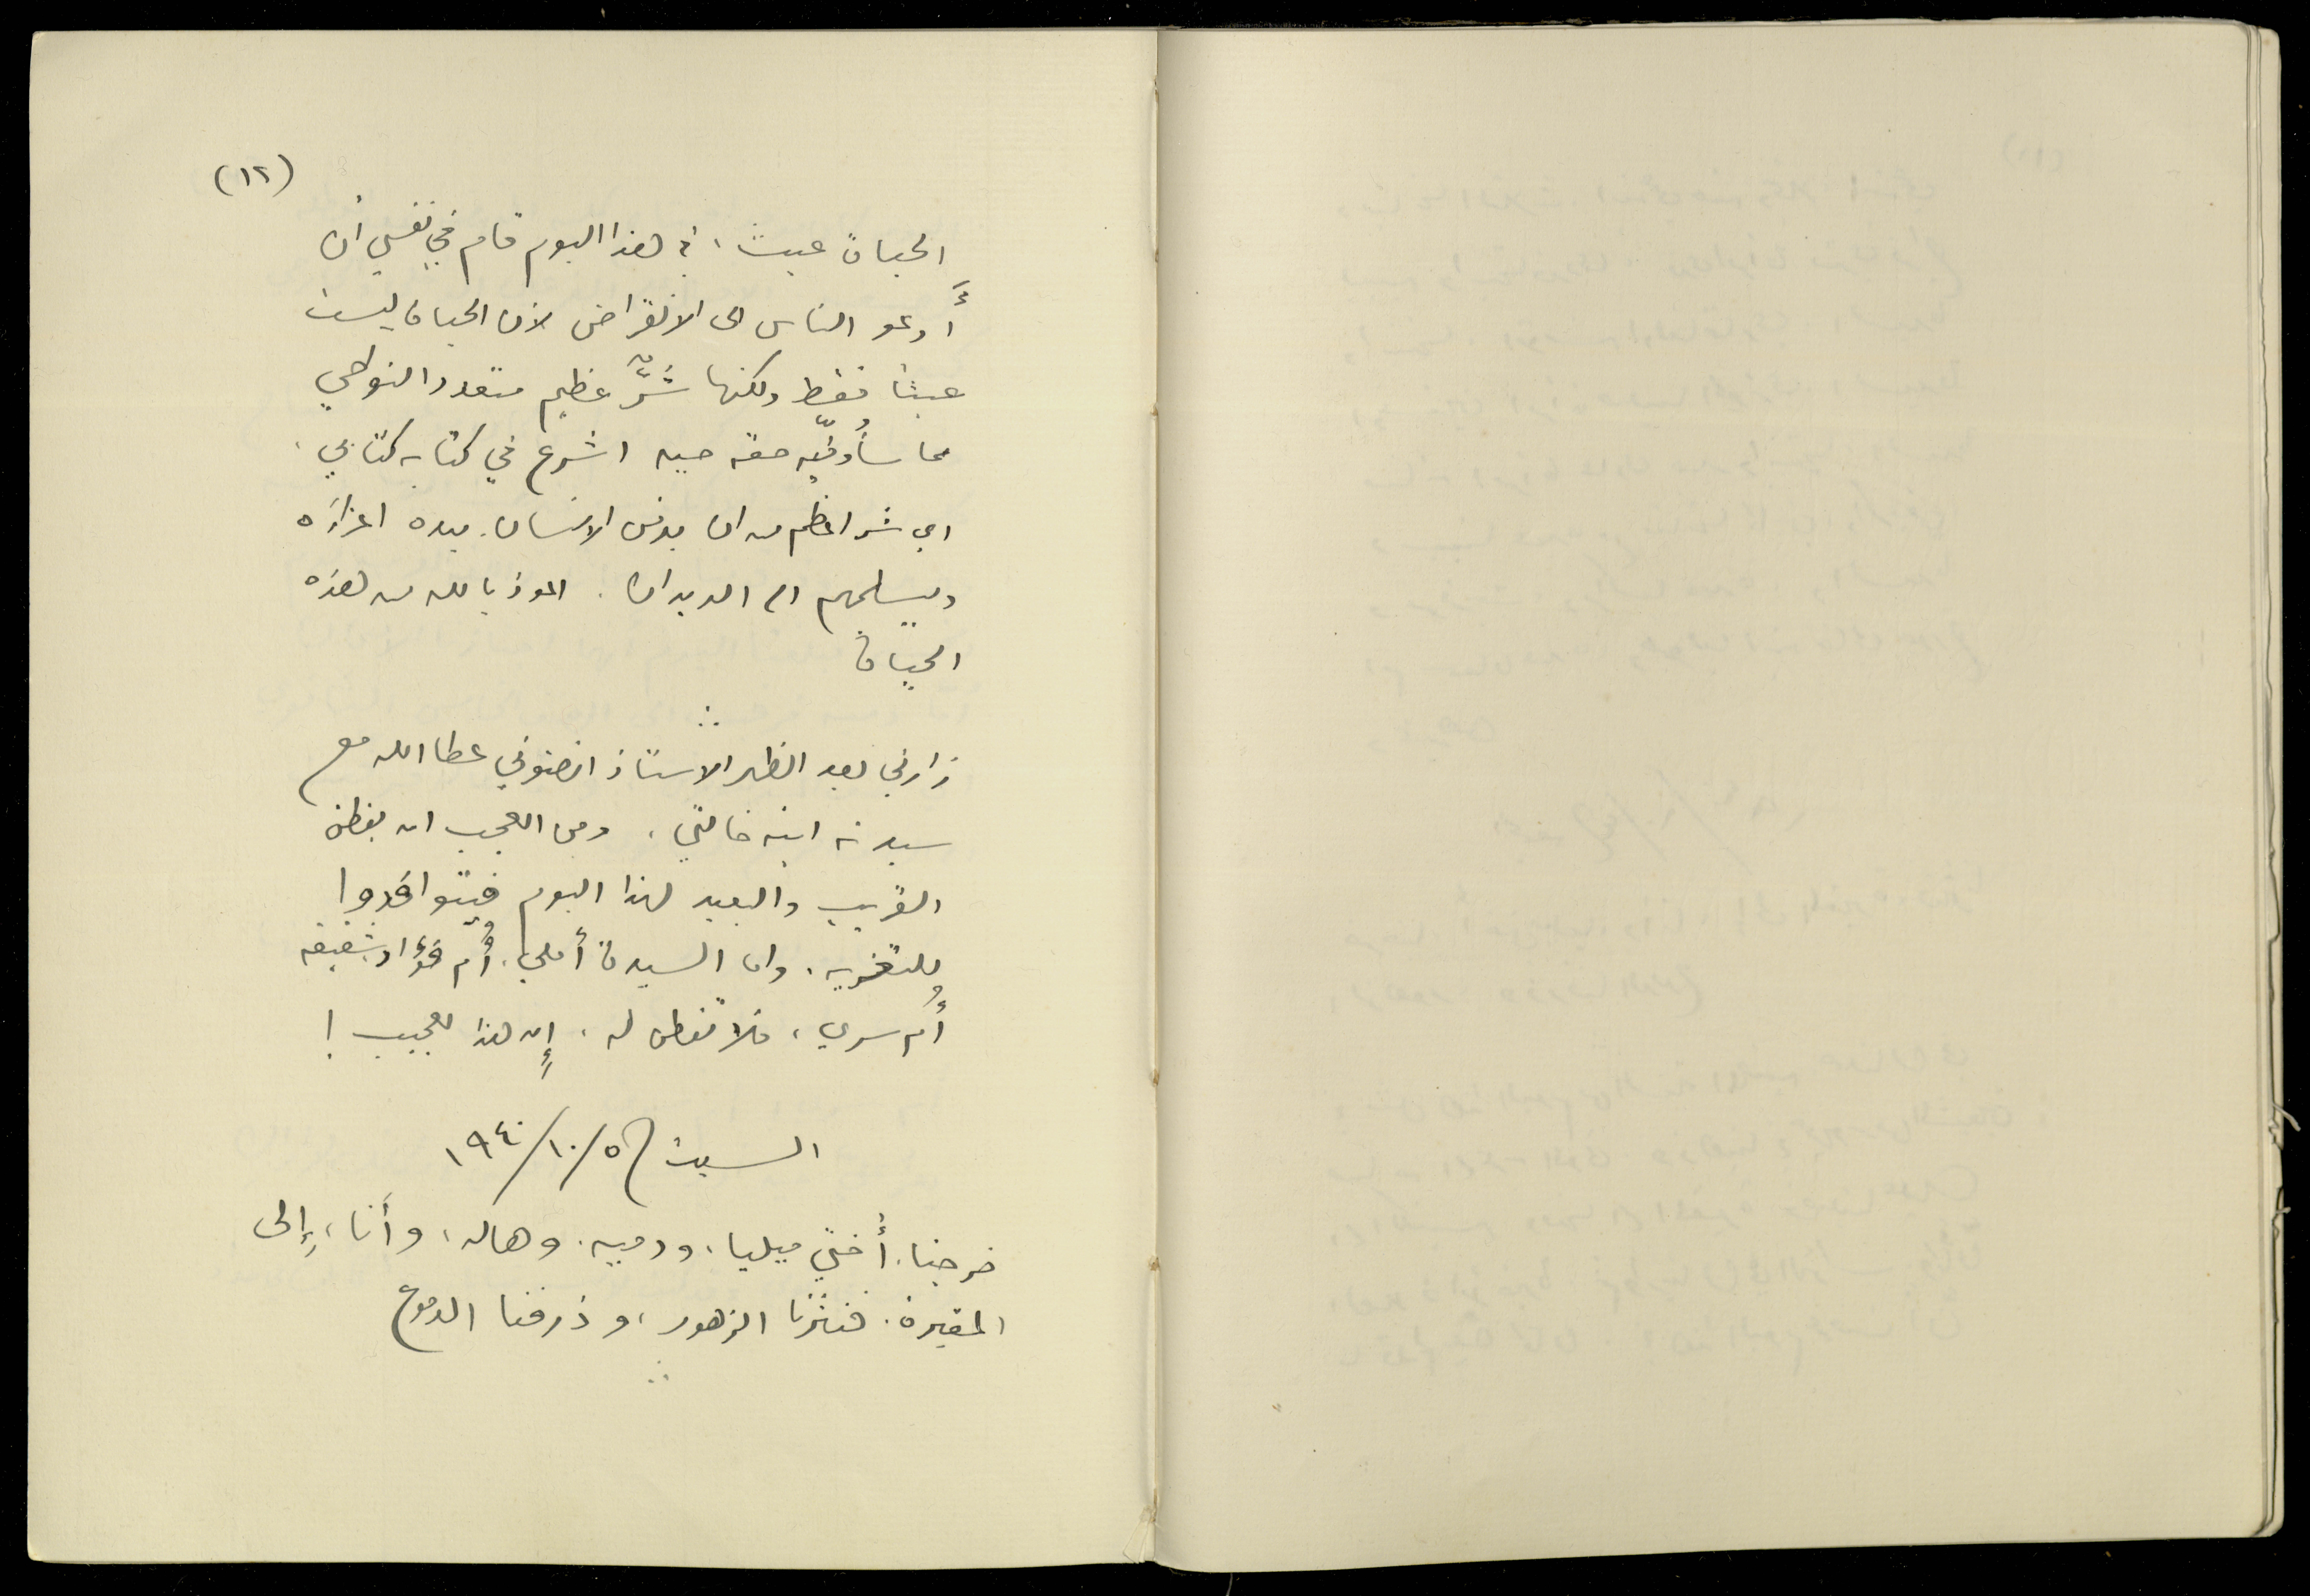 (١٢)
الحياة عبث، في هذا اليوم قام في نفسي أن
أدعو الناس الى الانقراض لأن الحياة ليست
عبثا فقط ولكنها شرٌّ عظيم متعدد النواحي
مما سأوفّيه حقه حين اشرع في كتابة كتابي.
اي شر اعظم من ان يدفن الانسان بيده اعزاءَه
ويسلمهم الى الديدان. اعوذ بالله من هذه
الحياة
زارني بعد الظهر الاستاذ انضوني عطا الله مع
سيدة ابنة خالتي، ومن العجب ان يفطن
القريب والبعيد لهذا اليوم فيتوافدوا
للتعزية، وان السيدة أملي، أم فؤاد، شقيقة
أُم سري، فلا تفطن له، إن هذا لعجيب!
السبت ٥/١٠/١٩٤٠
خرجنا، أختي ميليا، ودمية، وهاله، وأنا، إلى
المقبرة. فنثرنا الزهور، وذرفنا الدموع